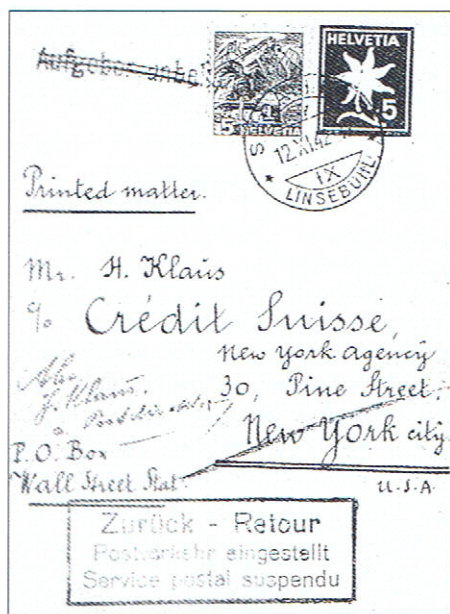 HELVETIA
5
5 HELVETIA
S
12.XI.42
IX
* LINSEBÜHL *
Printed matter.
Mr. H. Klaus
c/o Crédit Suisse,
New York Agency
30, Pine Street,
New York city.
P.O. Box
Wall Street Stat.
U.S.A.
Zurück - Retour
Postverkehr eingestellt
Service postal suspendu